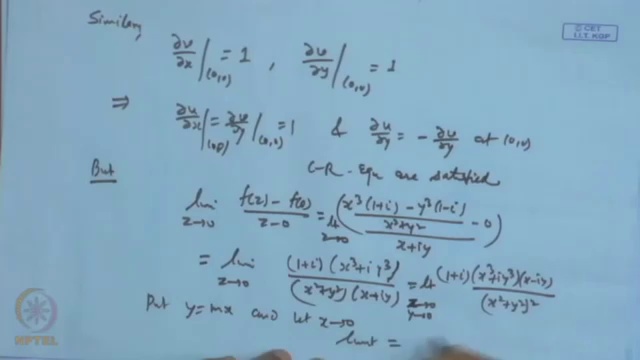 © CET
I.I.T. KGP
Similarly
∂v/∂x|(0,0) = 1 , ∂v/∂y|(0,0) = 1
⇒ ∂u/∂x|(0,0) = ∂v/∂y|(0,0) = 1 & ∂u/∂y = - ∂v/∂y at (0,0)
C-R- Equ are satisfied
But
lim z→0 (f(z) - f(0))/(z-0) = Lt z→0 ((x³(1+i) - y³(1-i))/(x²+y²) - 0)/(x+iy)
= lim z→0 ((1+i)(x³+iy³))/((x²+y²)(x+iy)) = Lt x→0 y→0 ((1+i)(x³+iy³)(x-iy))/(x²+y²)²
Put y=mx and let x→0
limit =
NPTEL